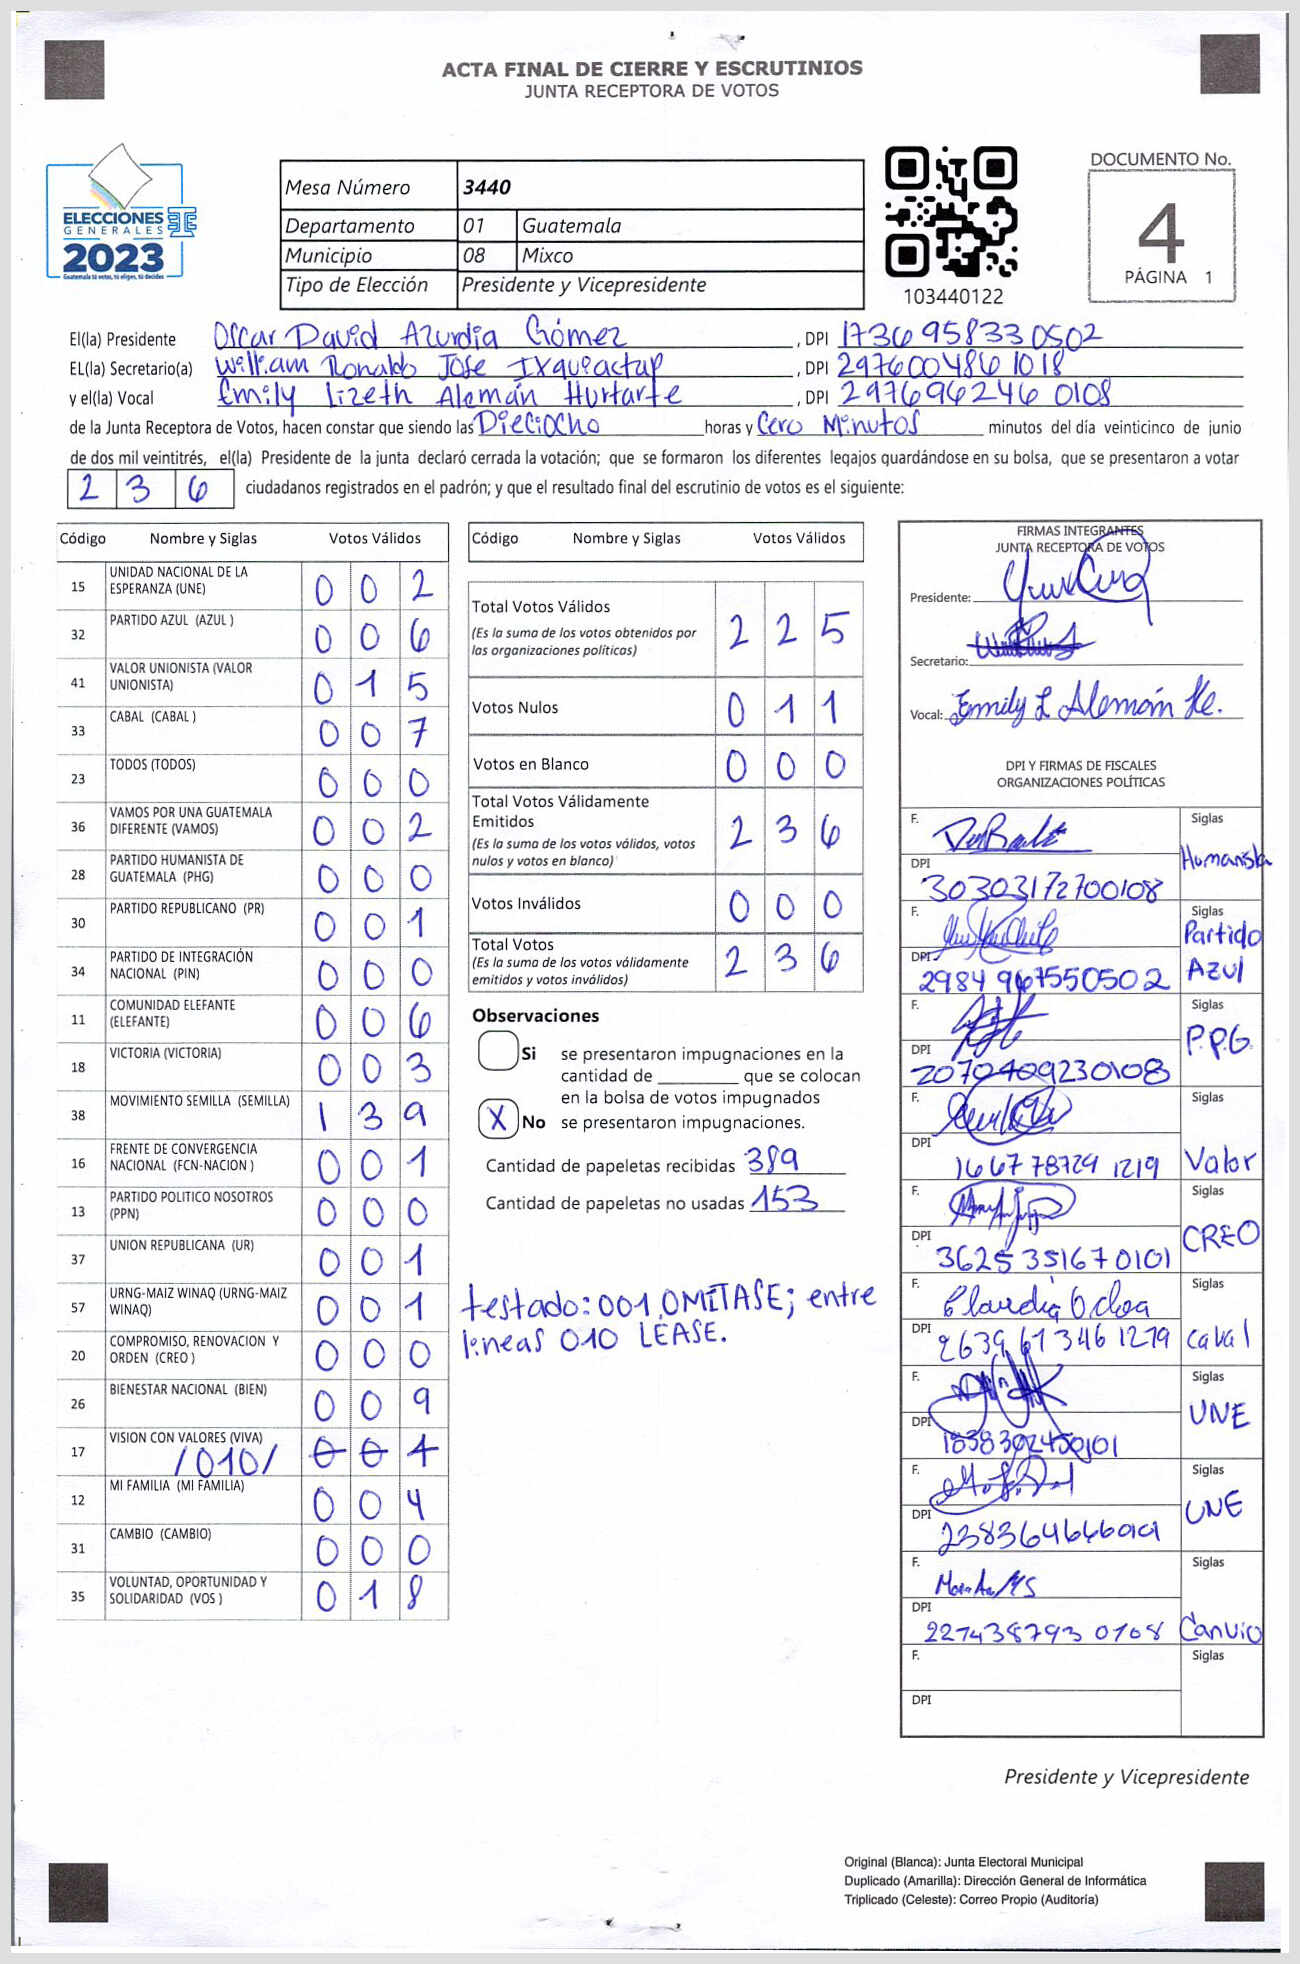 ACTA FINAL DE CIERRE Y ESCRUTINIOS
JUNTA RECEPTORA DE VOTOS
ELECCIONES
GENERALES
2023
Guatemala tú votas, tú eliges, tú decides
Mesa Número 3440
Departamento 01 Guatemala
Municipio 08 Mixco
Tipo de Elección Presidente y Vicepresidente
103440122
DOCUMENTO No.
4
PÁGINA 1
El(la) Presidente Oscar David Azurdia Gómez, DPI 1736958330502
EL(la) Secretario(a) William Ronaldo Jose Ixquiactap, DPI 2976004861018
y el(la) Vocal Emily Lizeth Alemán Hurtarte, DPI 297696246 0108
de la Junta Receptora de Votos, hacen constar que siendo las Dieciocho horas y Cero Minutos minutos del día veinticinco de junio
de dos mil veintitrés, el(la) Presidente de la junta declaró cerrada la votación; que se formaron los diferentes legajos guardándose en su bolsa, que se presentaron a votar
2 3 6 ciudadanos registrados en el padrón; y que el resultado final del escrutinio de votos es el siguiente:
Código Nombre y Siglas Votos Válidos
15 UNIDAD NACIONAL DE LA ESPERANZA (UNE) 0 0 2
32 PARTIDO AZUL (AZUL ) 0 0 6
41 VALOR UNIONISTA (VALOR UNIONISTA) 0 1 5
33 CABAL (CABAL ) 0 0 7
23 TODOS (TODOS) 0 0 0
36 VAMOS POR UNA GUATEMALA DIFERENTE (VAMOS) 0 0 2
28 PARTIDO HUMANISTA DE GUATEMALA (PHG) 0 0 0
30 PARTIDO REPUBLICANO (PR) 0 0 1
34 PARTIDO DE INTEGRACIÓN NACIONAL (PIN) 0 0 0
11 COMUNIDAD ELEFANTE (ELEFANTE) 0 0 6
18 VICTORIA (VICTORIA) 0 0 3
38 MOVIMIENTO SEMILLA (SEMILLA) 1 3 9
16 FRENTE DE CONVERGENCIA NACIONAL (FCN-NACION ) 0 0 1
13 PARTIDO POLITICO NOSOTROS (PPN) 0 0 0
37 UNION REPUBLICANA (UR) 0 0 1
57 URNG-MAIZ WINAQ (URNG-MAIZ WINAQ) 0 0 1
20 COMPROMISO, RENOVACION Y ORDEN (CREO ) 0 0 0
26 BIENESTAR NACIONAL (BIEN) 0 0 9
17 VISION CON VALORES (VIVA) /010/ 0 0 1
12 MI FAMILIA (MI FAMILIA) 0 0 4
31 CAMBIO (CAMBIO) 0 0 0
35 VOLUNTAD, OPORTUNIDAD Y SOLIDARIDAD (VOS ) 0 1 8
Código Nombre y Siglas Votos Válidos
Total Votos Válidos 2 2 5
(Es la suma de los votos obtenidos por
las organizaciones politicas)
Votos Nulos 0 1 1
Votos en Blanco 0 0 0
Total Votos Válidamente
Emitidos 2 3 6
(Es la suma de los votos válidos, votos
nulos y votos en blanco)
Votos Inválidos 0 0 0
Total Votos 2 3 6
(Es la suma de los votos válidamente
emitidos y votos inválidos)
Observaciones
Si se presentaron impugnaciones en la
cantidad de ________ que se colocan
en la bolsa de votos impugnados
X No se presentaron impugnaciones.
Cantidad de papeletas recibidas 389
Cantidad de papeletas no usadas 153
testado: 001, OMÍTASE; entre
lineas 010 LÉASE.
FIRMAS INTEGRANTES
JUNTA RECEPTORA DE VOTOS
Presidente:
Secretario:
Vocal: Emily L Alemán He.
DPI Y FIRMAS DE FISCALES
ORGANIZACIONES POLÍTICAS
F. Siglas
Humanista
DPI 30303172700108
F. Siglas
Partido Azul
DPI 2984 967550502
F. Siglas
P.P.G.
DPI 2070409230108
F. Siglas
Valor
DPI 166778729 1219
F. Siglas
CREO
DPI 3625351670101
F. Claudia Ochoa Siglas
Cabal
DPI 2639 67346 1279
F. Siglas
UNE
DPI
F. Siglas
UNE
DPI
F. Siglas
Canvio
DPI 227438793 0108
F. Siglas
DPI
Presidente y Vicepresidente
Original (Blanca): Junta Electoral Municipal
Duplicado (Amarilla): Dirección General de Informática
Triplicado (Celeste): Correo Propio (Auditoría)